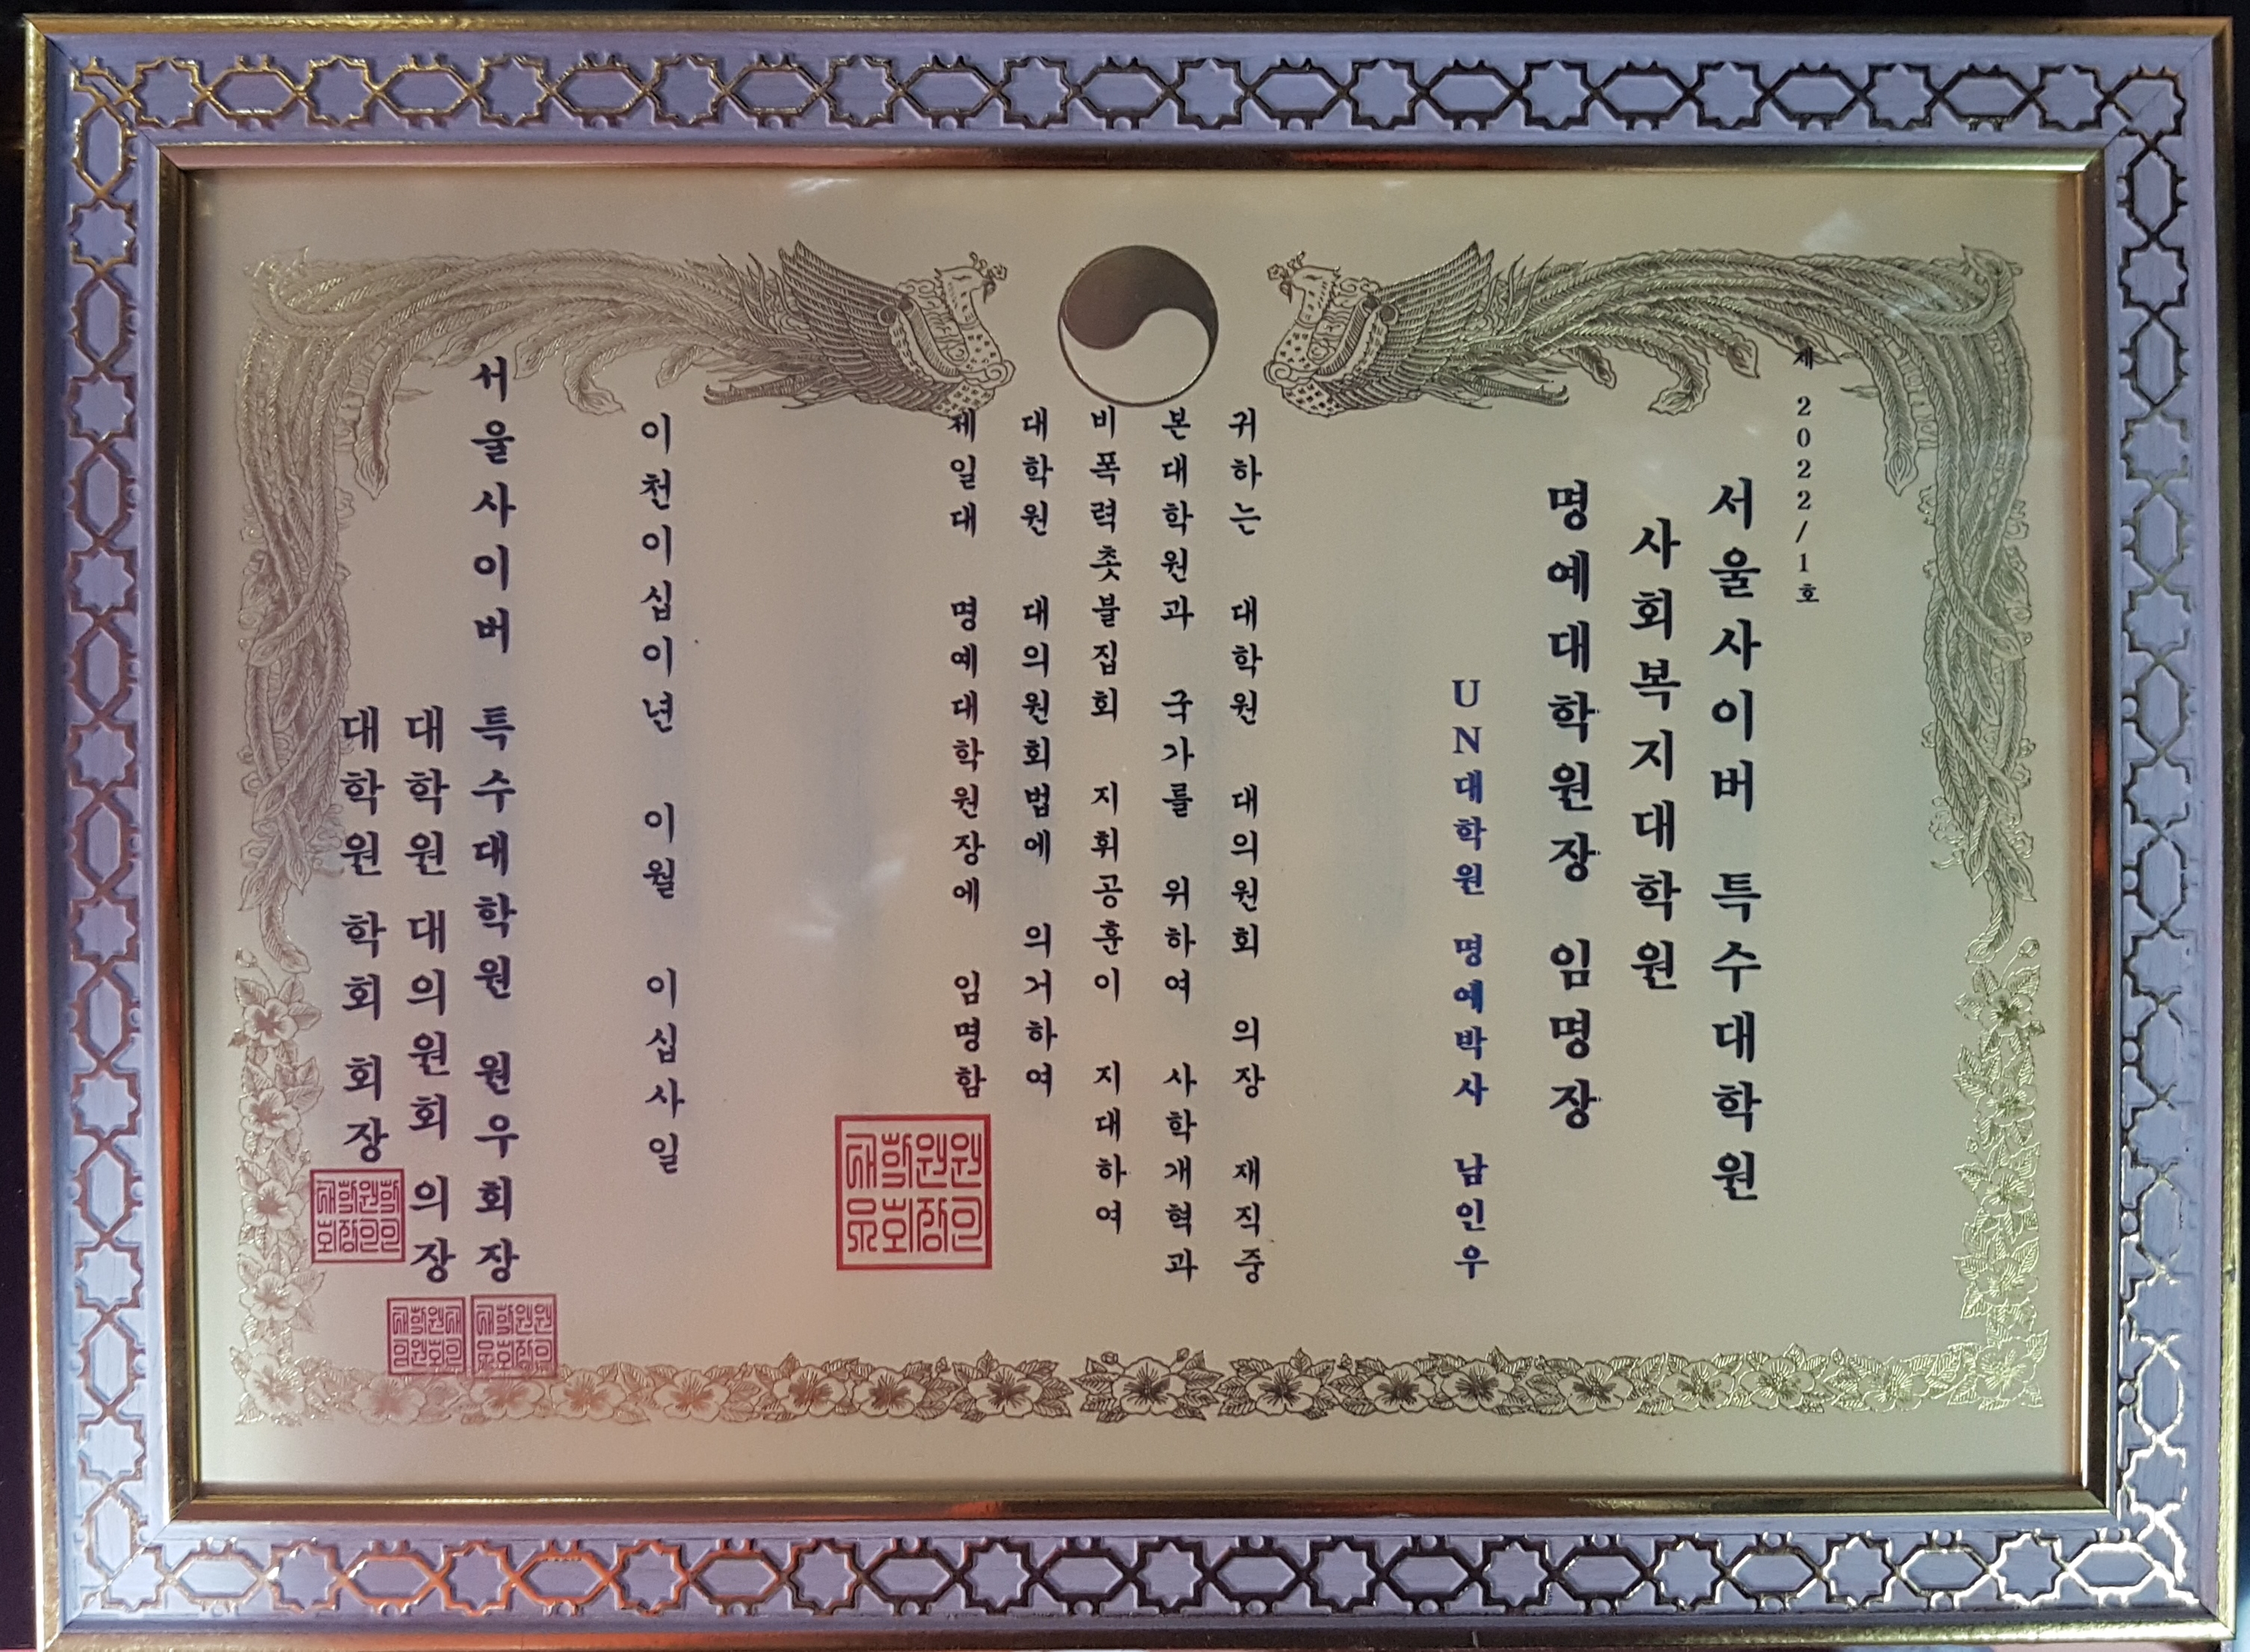 제 2022/1호
서울사이버 특수대학원
사회복지대학원
명예대학원장 임명장
UN대학원 명예박사 남인우
귀하는 대학원 대의원회 의장 재직중
본대학원과 국가를 위하여 사학개혁과
비폭력촛불집회 지휘공훈이 지대하여
대학원 대의원회법에 의거하여
제일대 명예대학원장에 임명함
이천이십이년 이월 이십사일
서울사이버 특수대학원 원우회장
대학원 대의원회 의장
대학원 학회 회장